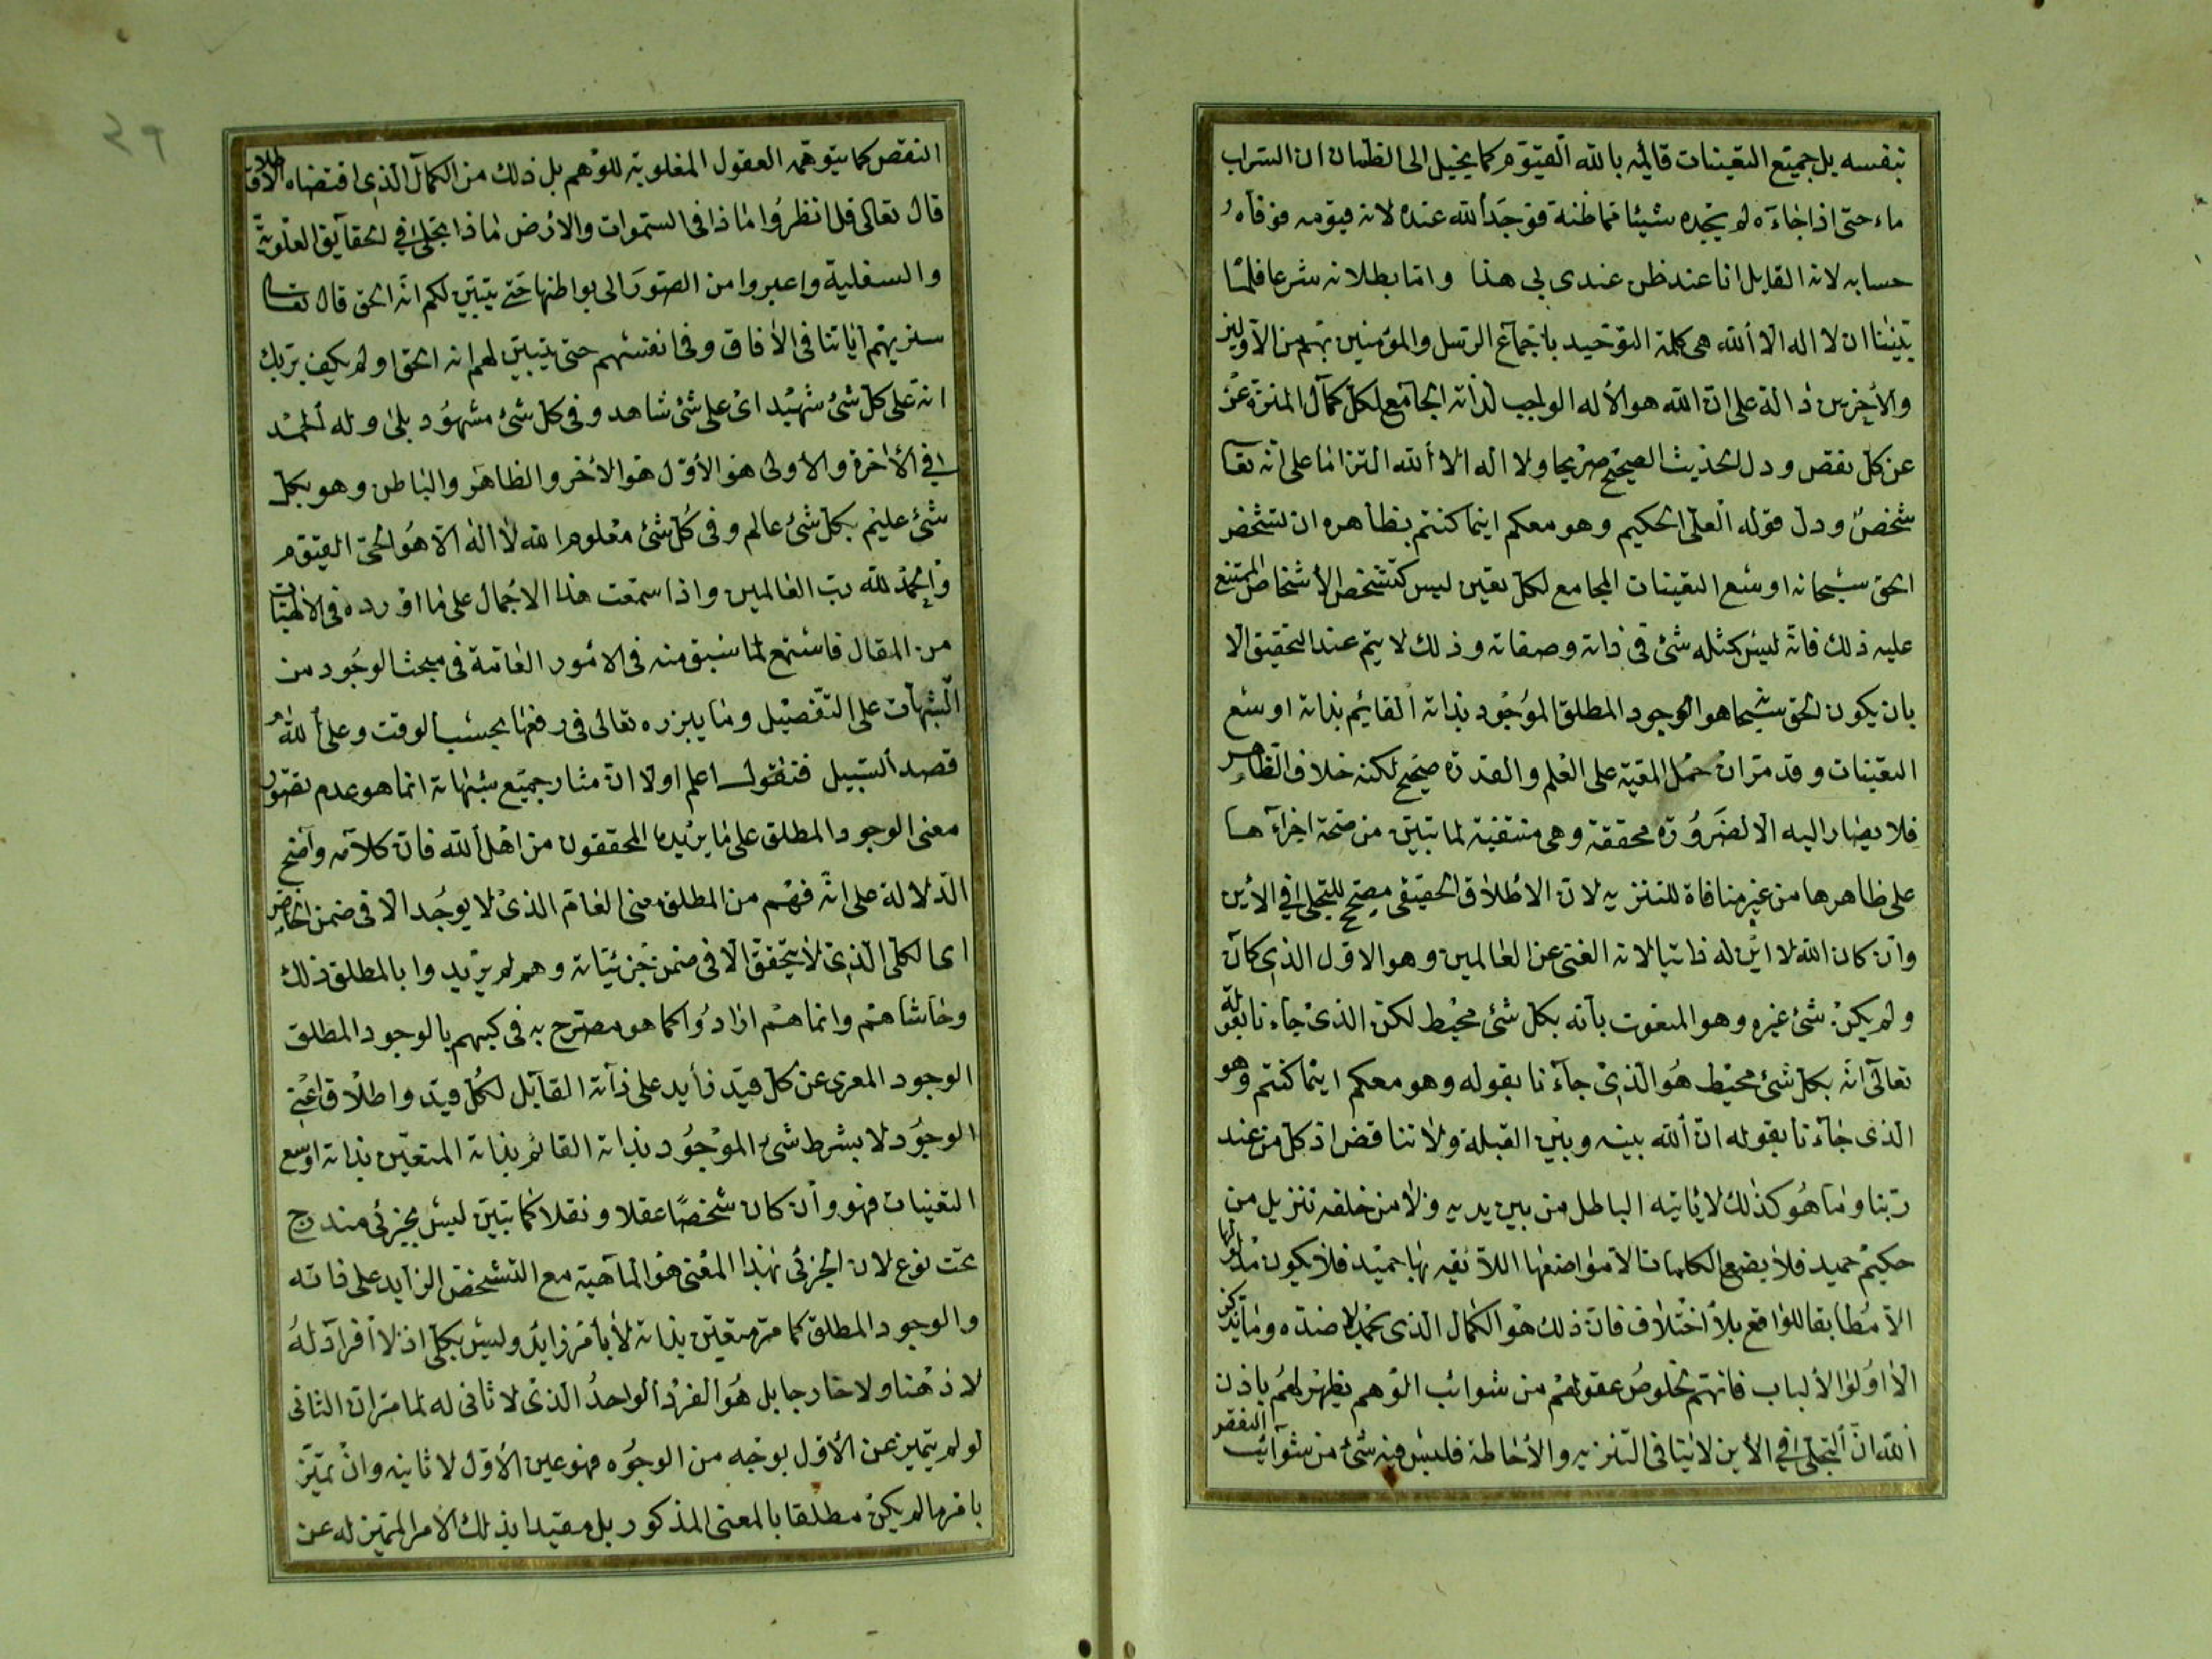 بنفسه بل جميع التعينات قائمة بالله القيوم كما يخيل الى الظمان ان السراب
ماء حتى اذا جاءه لم يجده شيئا مما ظنه فوجد الله عنده لانه قيومه فوفاه
حسابه لانه القايل انا عند ظن عندى بى هذا واما بطلانه شرعا فلما
بيننا ان لا اله الا الله هى كلمة التوحيد باجماع الرسل والمؤمنين بهم من الاولين
والاخرين دالة على ان الله هو الاله الواجب لذاته الجامع لكل كمال المنزه عن
عن كل نقص ودل الحديث الصحيح صريحا ولا اله الا الله التزاما على انه تعا
شخص ودل قوله العلى الحكيم وهو معكم اينما كنتم بظاهره ان تشخص
الحق سبحانه اوسع التعينات المجامع لكل تعين ليس كتشخص الاشخاص الممتنع
عليه ذلك فانه ليس كمثله شئ فى ذاته وصفاته وذلك لا يتم عند التحقيق الا
بان يكون الحق سبحا هو الوجود المطلق الموجود بذاته القايم بذاته اوسع
التعينات وقد مر ان حمل المعية على العلم والقدرة صحيح لكنه خلاف الظاهر
فلا يصار اليه الا لضرورة محققة وهى منتفية لما تبين من صحة اجراءها
على ظاهرها من غير منافاة للتنزيه لان الاطلاق الحقيقى مصحح للتجلى فى الاين
وان كان الله لا اين له ذاتيا لانه الغنى عن العالمين وهو الاول الذى كان
ولم يكن شئ غيره وهو المنعوت بانه بكل شئ محيط لكن الذى جاءنا بقوله
تعالى انه بكل شئ محيط هو الذى جاءنا بقوله وهو معكم اينما كنتم وهو
الذى جاءنا بقوله ان الله بينه وبين القبلة ولا تناقض اذ كل من عند
ربنا وما هو كذلك لا ياتيه الباطل من بين يديه ولا من خلفه تنزيل من
حكيم حميد فلا يضع الكلمات الا مواضعها اللائقه بها حميد فلا يكون مدلولها
الا مطابقا للواقع بلا اختلاف فان ذلك هو الكمال الذى يحمد لا ضده وما يتذكر
الا اولوا الالباب فانهم لخلوص عقولهم من شوائب الوهم يظهر لهم باذن
الله ان التجلى فى الاين لا ينافى التنزيه والاحاطة فليس فيه شئ من شوآئب النقص
النقص كما يتوهمه العقول المغلوبة للوهم بل ذلك من الكمال الذى اقتضاه الاطلاق
قال تعالى قل انظروا ماذا فى السموات والارض ماذا تجلى فى الحقآيق العلوية
والسفلية واعبروا من الصور الى بواطنها حتى يتبين لكم انه الحق قال تعا
سنريهم اياتنا فى الافاق وفى انفسهم حتى يتبين لهم انه الحق اولم يكف بربك
انه على كل شئ شهيد اى على شئ شاهد وفى كل شئ مشهود بلى وله الحمد
فى الاخرة والاولى هو الاول هو الاخر والظاهر والباطن وهو بكل
شئ عليم بكل شئ عالم وفى كل شئ معلوم الله لا اله الا هو الحى القيوم
والحمد لله رب العالمين واذا سمعت هذا الاجمال على ما اورده فى الالهيات
من المقال فاستمع لما سبق منه فى الامور العامة فى مبحث الوجود من
الشبهات على التفصيل وما يبرزه تعالى فى رفعها بحسب الوقت وعلى الله
قصد السبيل فنقول اعلم اولا ان مثار جميع شبهاته انما هو عدم تصور
معنى الوجود المطلق على ما يريده المحققون من اهل الله فان كلامه واضح
الدلالة على انه فهم من المطلق معنى العام الذى لا يوجد الا فى ضمن الخاص
اى الكلى الذى لا يتحقق الا فى ضمن جزئياته وهم لم يريدوا بالمطلق ذلك
وحاشاهم وانما هم ارادوا كما هو مصرح به فى كبهم بالوجود المطلق
الوجود المعرى عن كل قيد زايد على ذاته القآبل لكل قيد واطلاق اعنى
الوجود لا بشرط شئ الموجود بذاته القائم بذاته المتعين بذاته اوسع
التعينات فهو وان كان شخصا عقلا ونقلا كما تبين ليس بجزئى مندرج
تحت نوع لان الجزئى بهذا المعنى هو الماهية مع التشخص الزايد على ذاته
والوجود المطلق كما مر متعين بذاته لا بامر زايد وليس بكلى اذ لا افراد له
لا ذهنا ولا خارجا بل هو الفرد الواحد الذى لا ثانى له لما مر ان الثانى
لو لم يتميز عن الاول بوجه من الوجوه فهو عين الاول لا ثانيه وان تميز
بامر ما لم يكن مطلقا بالمعنى المذكور بل مقيدا بذلك الامر المتميز له عن